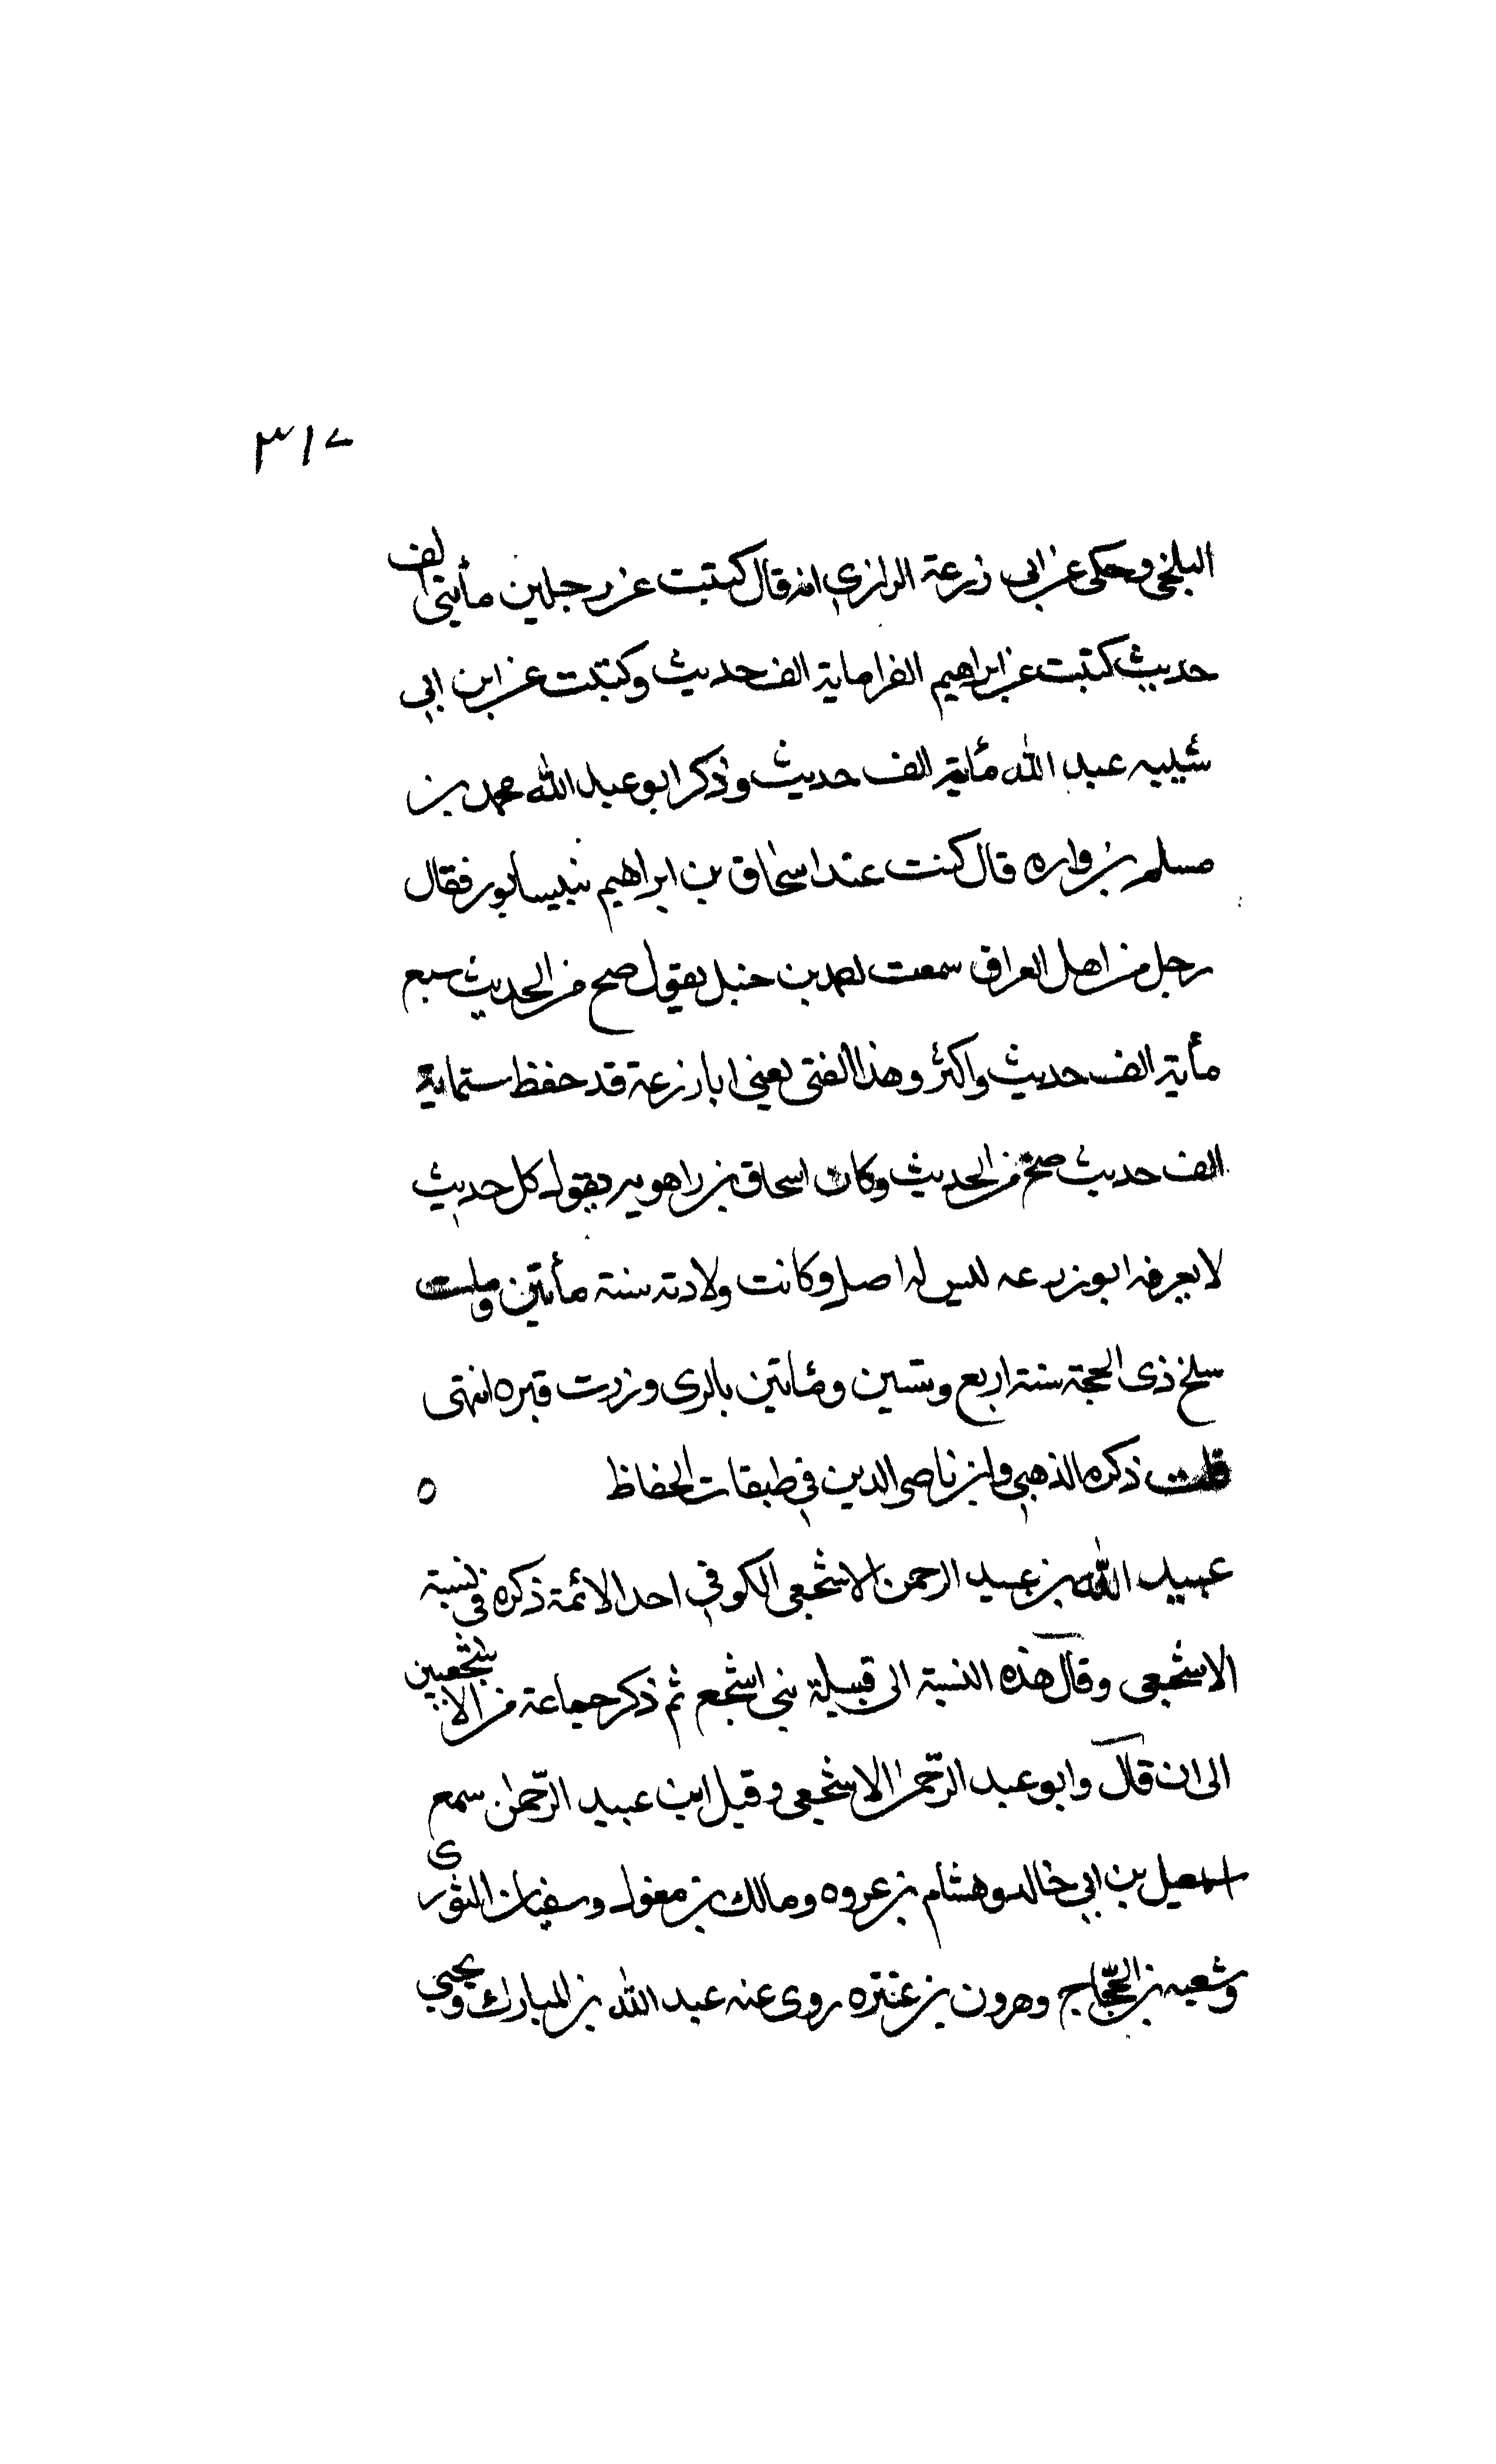 ٣١٧
البلخي وحكى عن ابي زرعة الرازي انه قال كتبت عن رجلين مأيتي الف
حديث كتبت عن ابراهيم الفرا ماية الف حديث وكتبت عن ابن ابي
شيبه عبد الله مأية الف حديث وذكر ابو عبد الله محمد بن
مسلم بن واره قال كنت عند اسحاق بن ابراهيم بنيسابور فقال
رجل من اهل العراق سمعت احمد بن حنبل يقول صح من الحديث سبع
مأية الف حديث واكثر وهذا الفتى يعني ابا زرعة قد حفظ ستماية
الف حديث صح من الحديث وكان اسحاق بن راهويه يقول كل حديث
لا يعرفه ابو زرعه ليس له اصل وكانت ولادته سنة مأتين ومات
سلخ ذى الحجة سنة اربع وستين ومأتين بالرى وزرت قبره انتهى
قلت ذكره الذهبي وابن ناصر الدين في طبقات الحفاظ ٥
عبيد الله بن عبيد الرحمن الاشجعى الكوفي احد الائمة ذكره في نسبة
الاشجعى وقال هذه النسبة الى قبيلة بني اشجع ثم ذكر جماعة من الاشجعيين
الى ان قال وابو عبد الرحمن الاشجعى وقيل ابن عبيد الرحمن سمع
اسمعيل بن ابي خالد وهشام بن عروه ومالك بن مغول وسفيان الثورى
وشعبه بن الحجاج وهرون بن عنتره روى عنه عبد الله بن المبارك ويحيى